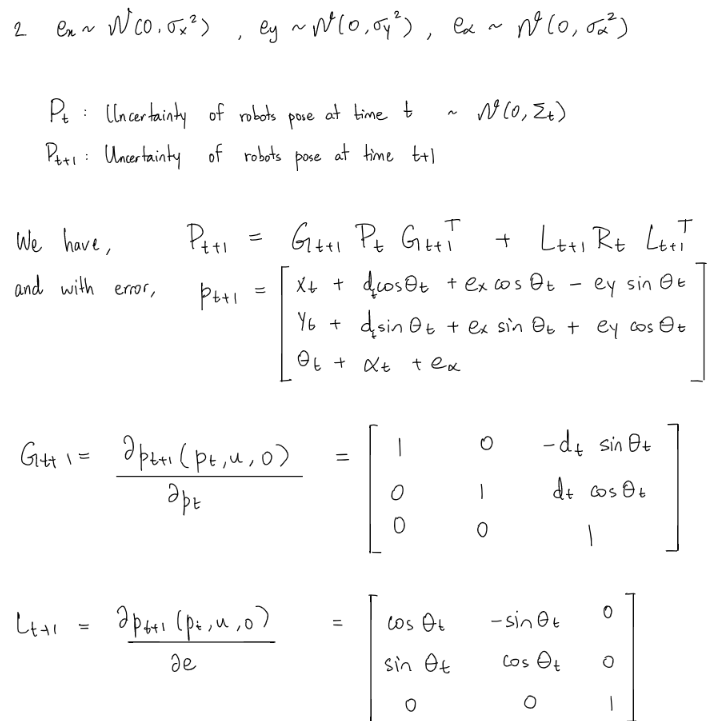 2 eₓ ~ N(0, σₓ²) , e_y ~ N(0, σ_y²) , e_α ~ N(0, σ_α²)
P_t : Uncertainty of robots pose at time t ~ N(0, Σ_t)
P_{t+1} : Uncertainty of robots pose at time t+1
We have, P_{t+1} = G_{t+1} P_t G_{t+1}^T + L_{t+1} R_t L_{t+1}^T
and with error, p_{t+1} = [ x_t + d_t cos θ_t + e_x cos θ_t - e_y sin θ_t
y_t + d_t sin θ_t + e_x sin θ_t + e_y cos θ_t
θ_t + α_t + e_α ]
G_{t+1} = ∂p_{t+1}(p_t, u, 0) / ∂p_t = [ 1 0 -d_t sin θ_t
0 1 d_t cos θ_t
0 0 1 ]
L_{t+1} = ∂p_{t+1}(p_t, u, 0) / ∂e = [ cos θ_t -sin θ_t 0
sin θ_t cos θ_t 0
0 0 1 ]